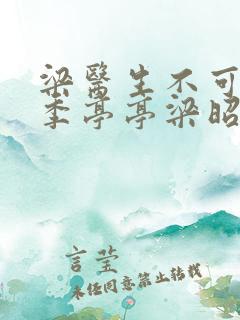 梁醫生不可
李亭亭梁昭
言莹
未经同意禁止转载